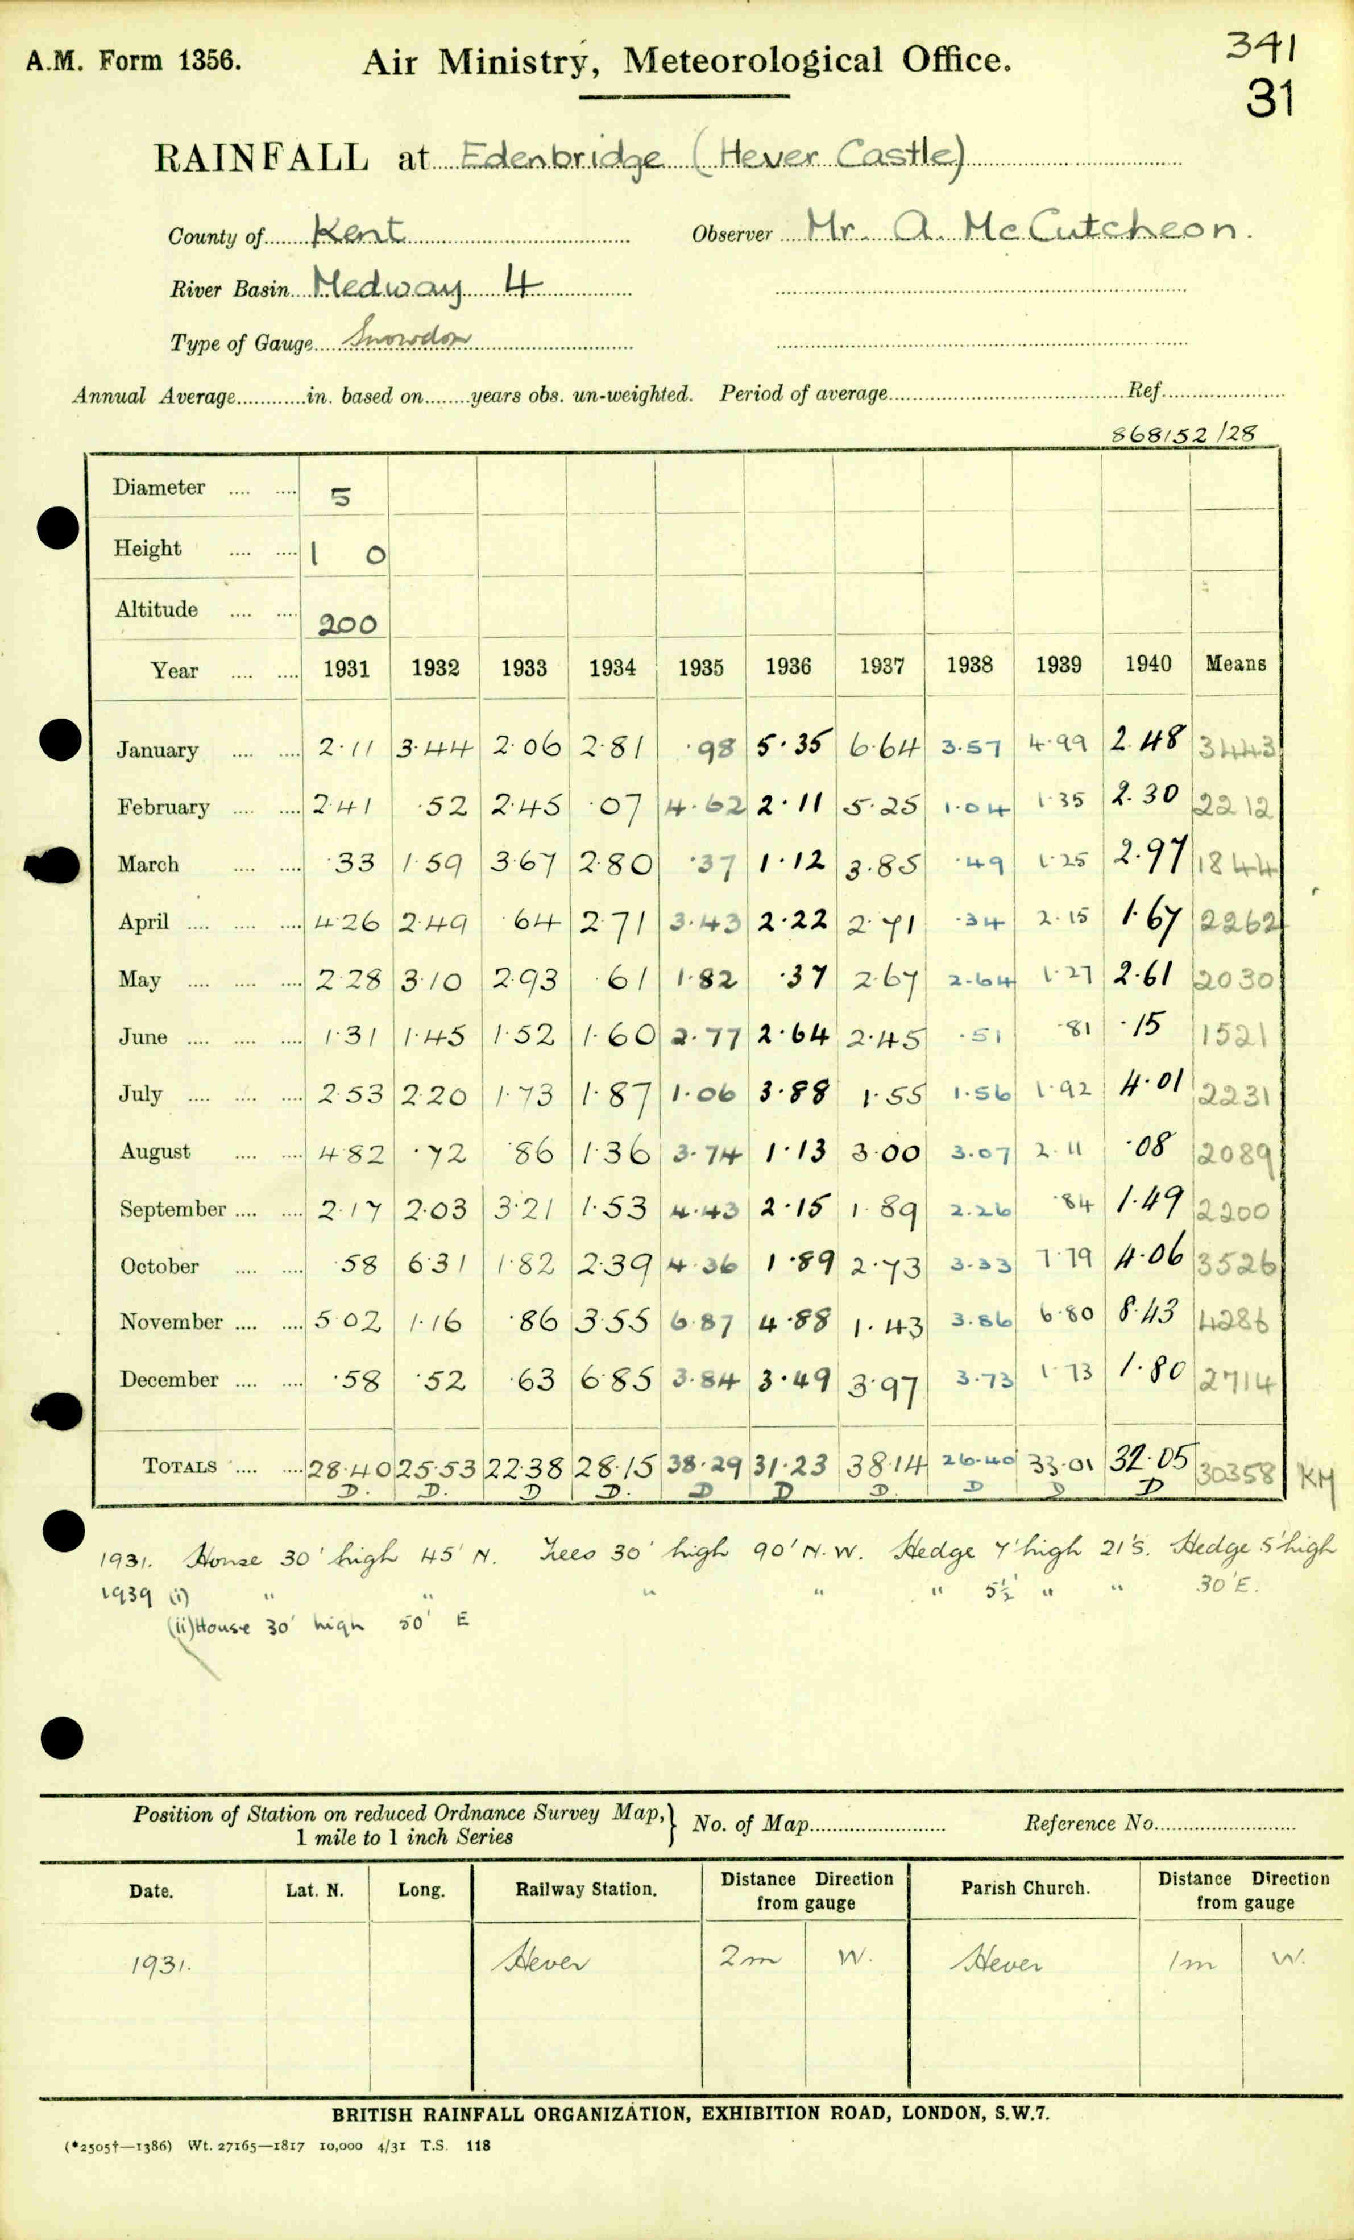 341
A.M. Form 1356. Air Ministry, Meteorological Office.
31
RAINFALL at Edenbridge (Hever Castle)
County of Kent Observer Mr. A. McCutcheon.
River Basin Medway 4
Type of Gauge Snowdon
Annual Average............in. based on........years obs. un-weighted. Period of average............Ref............
868152/28
Diameter .... .... 5
Height .... .... 1 0
Altitude .... .... 200
Year .... .... 1931 1932 1933 1934 1935 1936 1937 1938 1939 1940 Means
January .... .... 2.11 3.44 2.06 2.81 .98 5.35 6.64 3.57 4.99 2.48 3443
February .... .... 2.41 .52 2.45 .07 4.62 2.11 5.25 1.04 1.35 2.30 2212
March .... .... .33 1.59 3.67 2.80 .37 1.12 3.85 .49 1.25 2.97 1844
April .... .... .... 4.26 2.49 .64 2.71 3.43 2.22 2.71 .34 2.15 1.67 2262
May .... .... .... 2.28 3.10 2.93 .61 1.82 .37 2.67 2.64 1.27 2.61 2030
June .... .... .... 1.31 1.45 1.52 1.60 2.77 2.64 2.45 .51 .81 .15 1521
July .... .... .... 2.53 2.20 1.73 1.87 1.06 3.88 1.55 1.56 1.92 4.01 2231
August .... .... 4.82 .72 .86 1.36 3.74 1.13 3.00 3.07 2.11 .08 2089
September .... .... 2.17 2.03 3.21 1.53 4.43 2.15 1.89 2.26 .84 1.49 2200
October .... .... .58 6.31 1.82 2.39 4.36 1.89 2.73 3.33 7.79 4.06 3526
November .... .... 5.02 1.16 .86 3.55 6.87 4.88 1.43 3.86 6.80 8.43 4286
December .... .... .58 .52 .63 6.85 3.84 3.49 3.97 3.73 1.73 1.80 2714
TOTALS .... .... 28.40 25.53 22.38 28.15 38.29 31.23 38.14 26.40 33.01 32.05 30358 KM
D. D. D D. D D D. D D D
1931. House 30' high 45' N. Trees 30' high 90' N.W. Hedge 7' high 21' S. Hedge 5' high
1939 (i) " " " " " 5½' " " 30' E.
(ii) House 30' high 50' E
Position of Station on reduced Ordnance Survey Map, } No. of Map............ Reference No............
1 mile to 1 inch Series
Date. Lat. N. Long. Railway Station. Distance Direction from gauge Parish Church. Distance Direction from gauge
1931. Hever 2m W. Hever 1m W.
BRITISH RAINFALL ORGANIZATION, EXHIBITION ROAD, LONDON, S.W.7.
(*2505†—1386) Wt. 27165—1817 10,000 4/31 T.S. 118